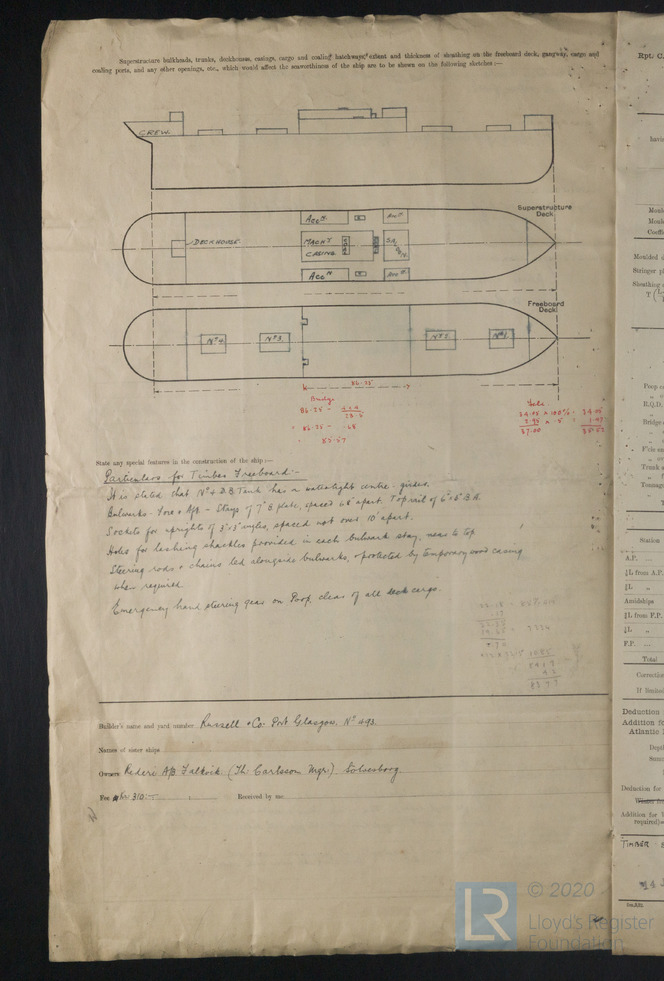 Superstructure bulkheads, trunks, deckhouses, casings, cargo and coaling hatchways, extent and thickness of sheathing on the freeboard deck, gangway, cargo and
coaling ports, and any other openings, etc., which would affect the seaworthiness of the ship are to be shown on the following sketches:—
CREW.
Superstructure
Deck
ACCN
DECKHOUSE
MACHY
CASING
ACCN
Freeboard
Deck
No 4.
No 3.
No 2.
No 1.
86.25
Bridge
86.25 -
86.25 - .68
85.57
34.05 x 100% = 34.05
2.95 x .5 = 1.47
37.00 35.52
State any special features in the construction of the ship:—
Particulars for Timber Freeboard:-
It is stated that No 4 D.B. Tank has a watertight centre-girder.
Bulwarks - Fore & Aft - Stays of 7" B. plate, spaced 48" apart. Top rail of 6" x 6" B.A.
Sockets for uprights of 3" x 3" angles, spaced not over 10' apart.
Holes for lashing shackles provided in each bulwark stay, near to top
Steering rods & chains led alongside bulwarks, & protected by temporary wood casing
when required.
Emergency hand steering gear on Poop, clear of all deck cargo.
Builder's name and yard number Russell & Co. Port Glasgow. No 493.
Names of sister ships
Owners Rederi A/B Falkvik (Th. Carlsson Mgr.) Solvesborg
Fee Kr 310:— Received by me
Rpt. C.
Station
A.P.
¼L from A.P.
½L "
Amidships
½L from F.P.
¼L "
F.P.
Total
Deduction
Addition fo
Atlantic
Deduction for
Addition for
required)
TIMBER S
LR
© 2020
Lloyd's Register
Foundation